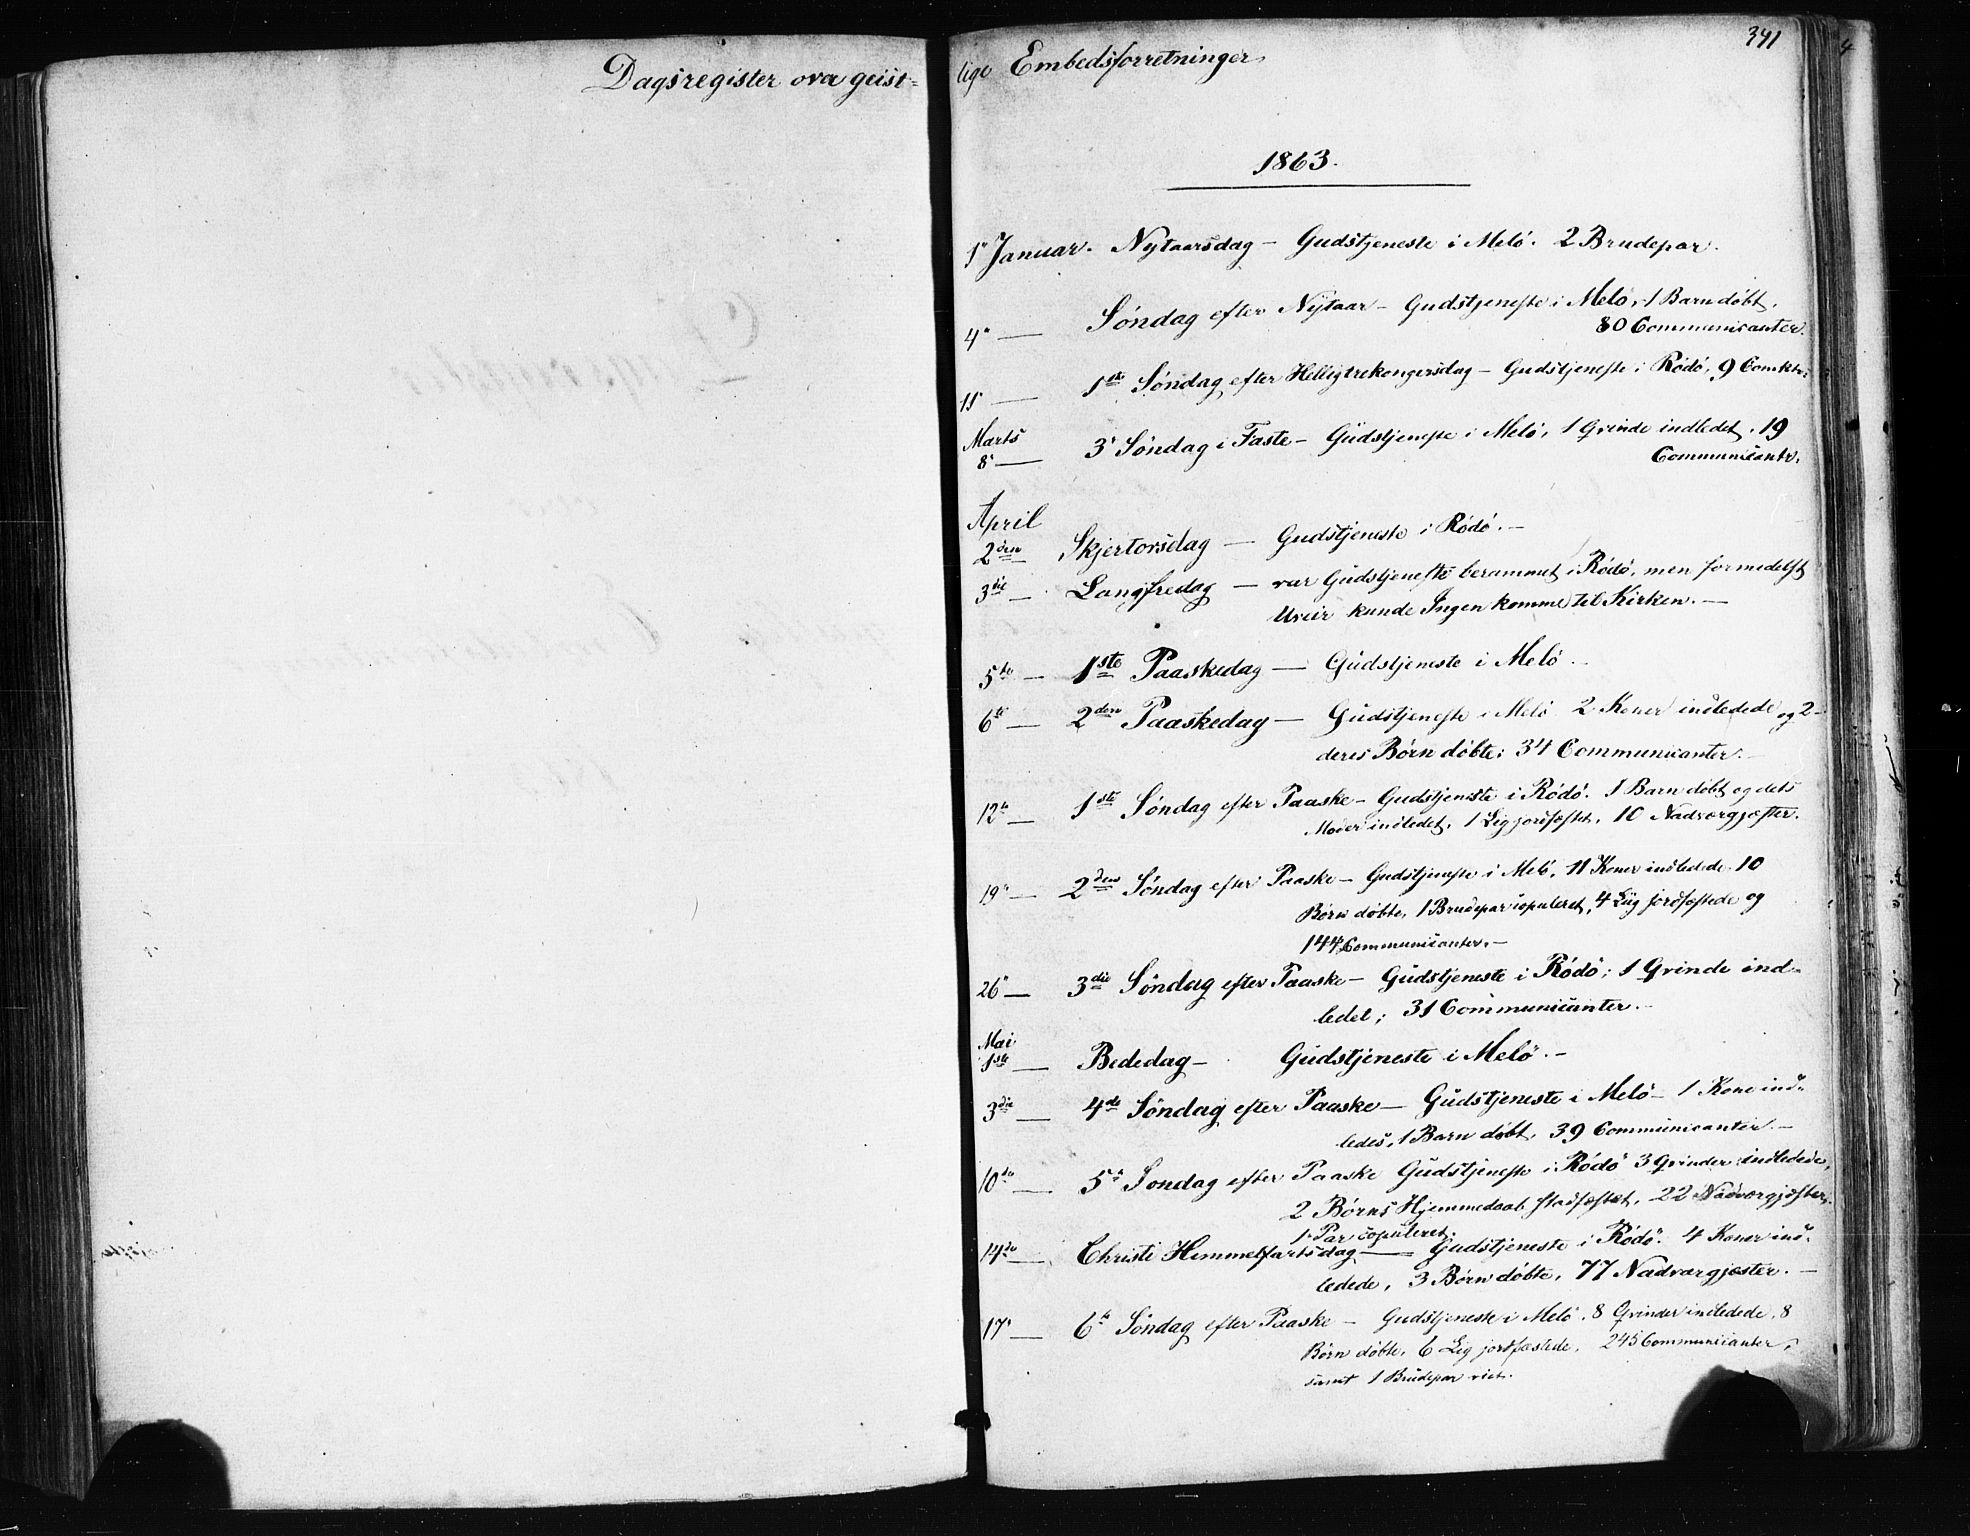 Dagsregister over geist=
lige Embedsforretninger
391
1863.
1' Januar. Nytaarsdag – Gudstjeneste i Melö. 2 Brudepar.
4' — Söndag efter Nytaar – Gudstjeneste i Melö, 1 Barn döbt,
80 Communicanter.
11' — 1ste Söndag efter Helligtrekongersdag – Gudstjeneste i Rödö, 9 Comktr:
Marts
8' — 3' Söndag i Faste – Gudstjeneste i Melö, 1 Qvinde indledet, 19
Communicantr.
April
2den Skjertorsdag — Gudstjeneste i Rödö. –
3die — Langfredag — var Gudstjeneste berammet i Rödö, men formedelst
Uveir kunde Ingen komme til Kirken. —
5te — 1ste Paaskedag — Gudstjeneste i Melö –
6te — 2den Paaskedag — Gudstjeneste i Melö 2 Koner indledede og 2
deres Börn döbte; 34 Communicanter. –
12te — 1ste Söndag efter Paaske – Gudstjeneste i Rödö. 1 Barn döbt og dets
Moder indledet, 1 Lig jordfæstet, 10 Nadvergjester.
19' — 2den Söndag efter Paaske – Gudstjeneste i Melö, 11 Koner indledede 10
Börn döbte, 1 Brudepar copuleret, 4 Liig jordfæstede og
144 Communicanter. –
26' — 3die Söndag efter Paaske – Gudstjeneste i Rödö; 1 Qvinde ind-
ledet; 31 Communicanter. –
Mai
1ste — Bededag – Gudstjeneste i Melö. –
3die — 4de Söndag efter Paaske — Gudstjeneste i Melö – 1 Kone ind-
ledes, 1 Barn döbt, 39 Communicanter. –
10de — 5te Söndag efter Paaske Gudstjeneste i Rödö 3 Qvinder indledede,
2 Börns Hjemmedaab stadfæstet, 22 Nadvergjester,
1 Par copuleret.
14de — Christi Himmelfartsdag — Gudstjeneste i Rödö. 4 Koner ind-
ledede, 3 Börn döbte, 77 Nadvergjester. –
17' — 6te Söndag efter Paaske — Gudstjeneste i Melö, 8 Qvinder indledede, 8
Börn döbte, 6 Lig jordfæstede, 245 Communicanter,
samt 1 Brudepar viet.